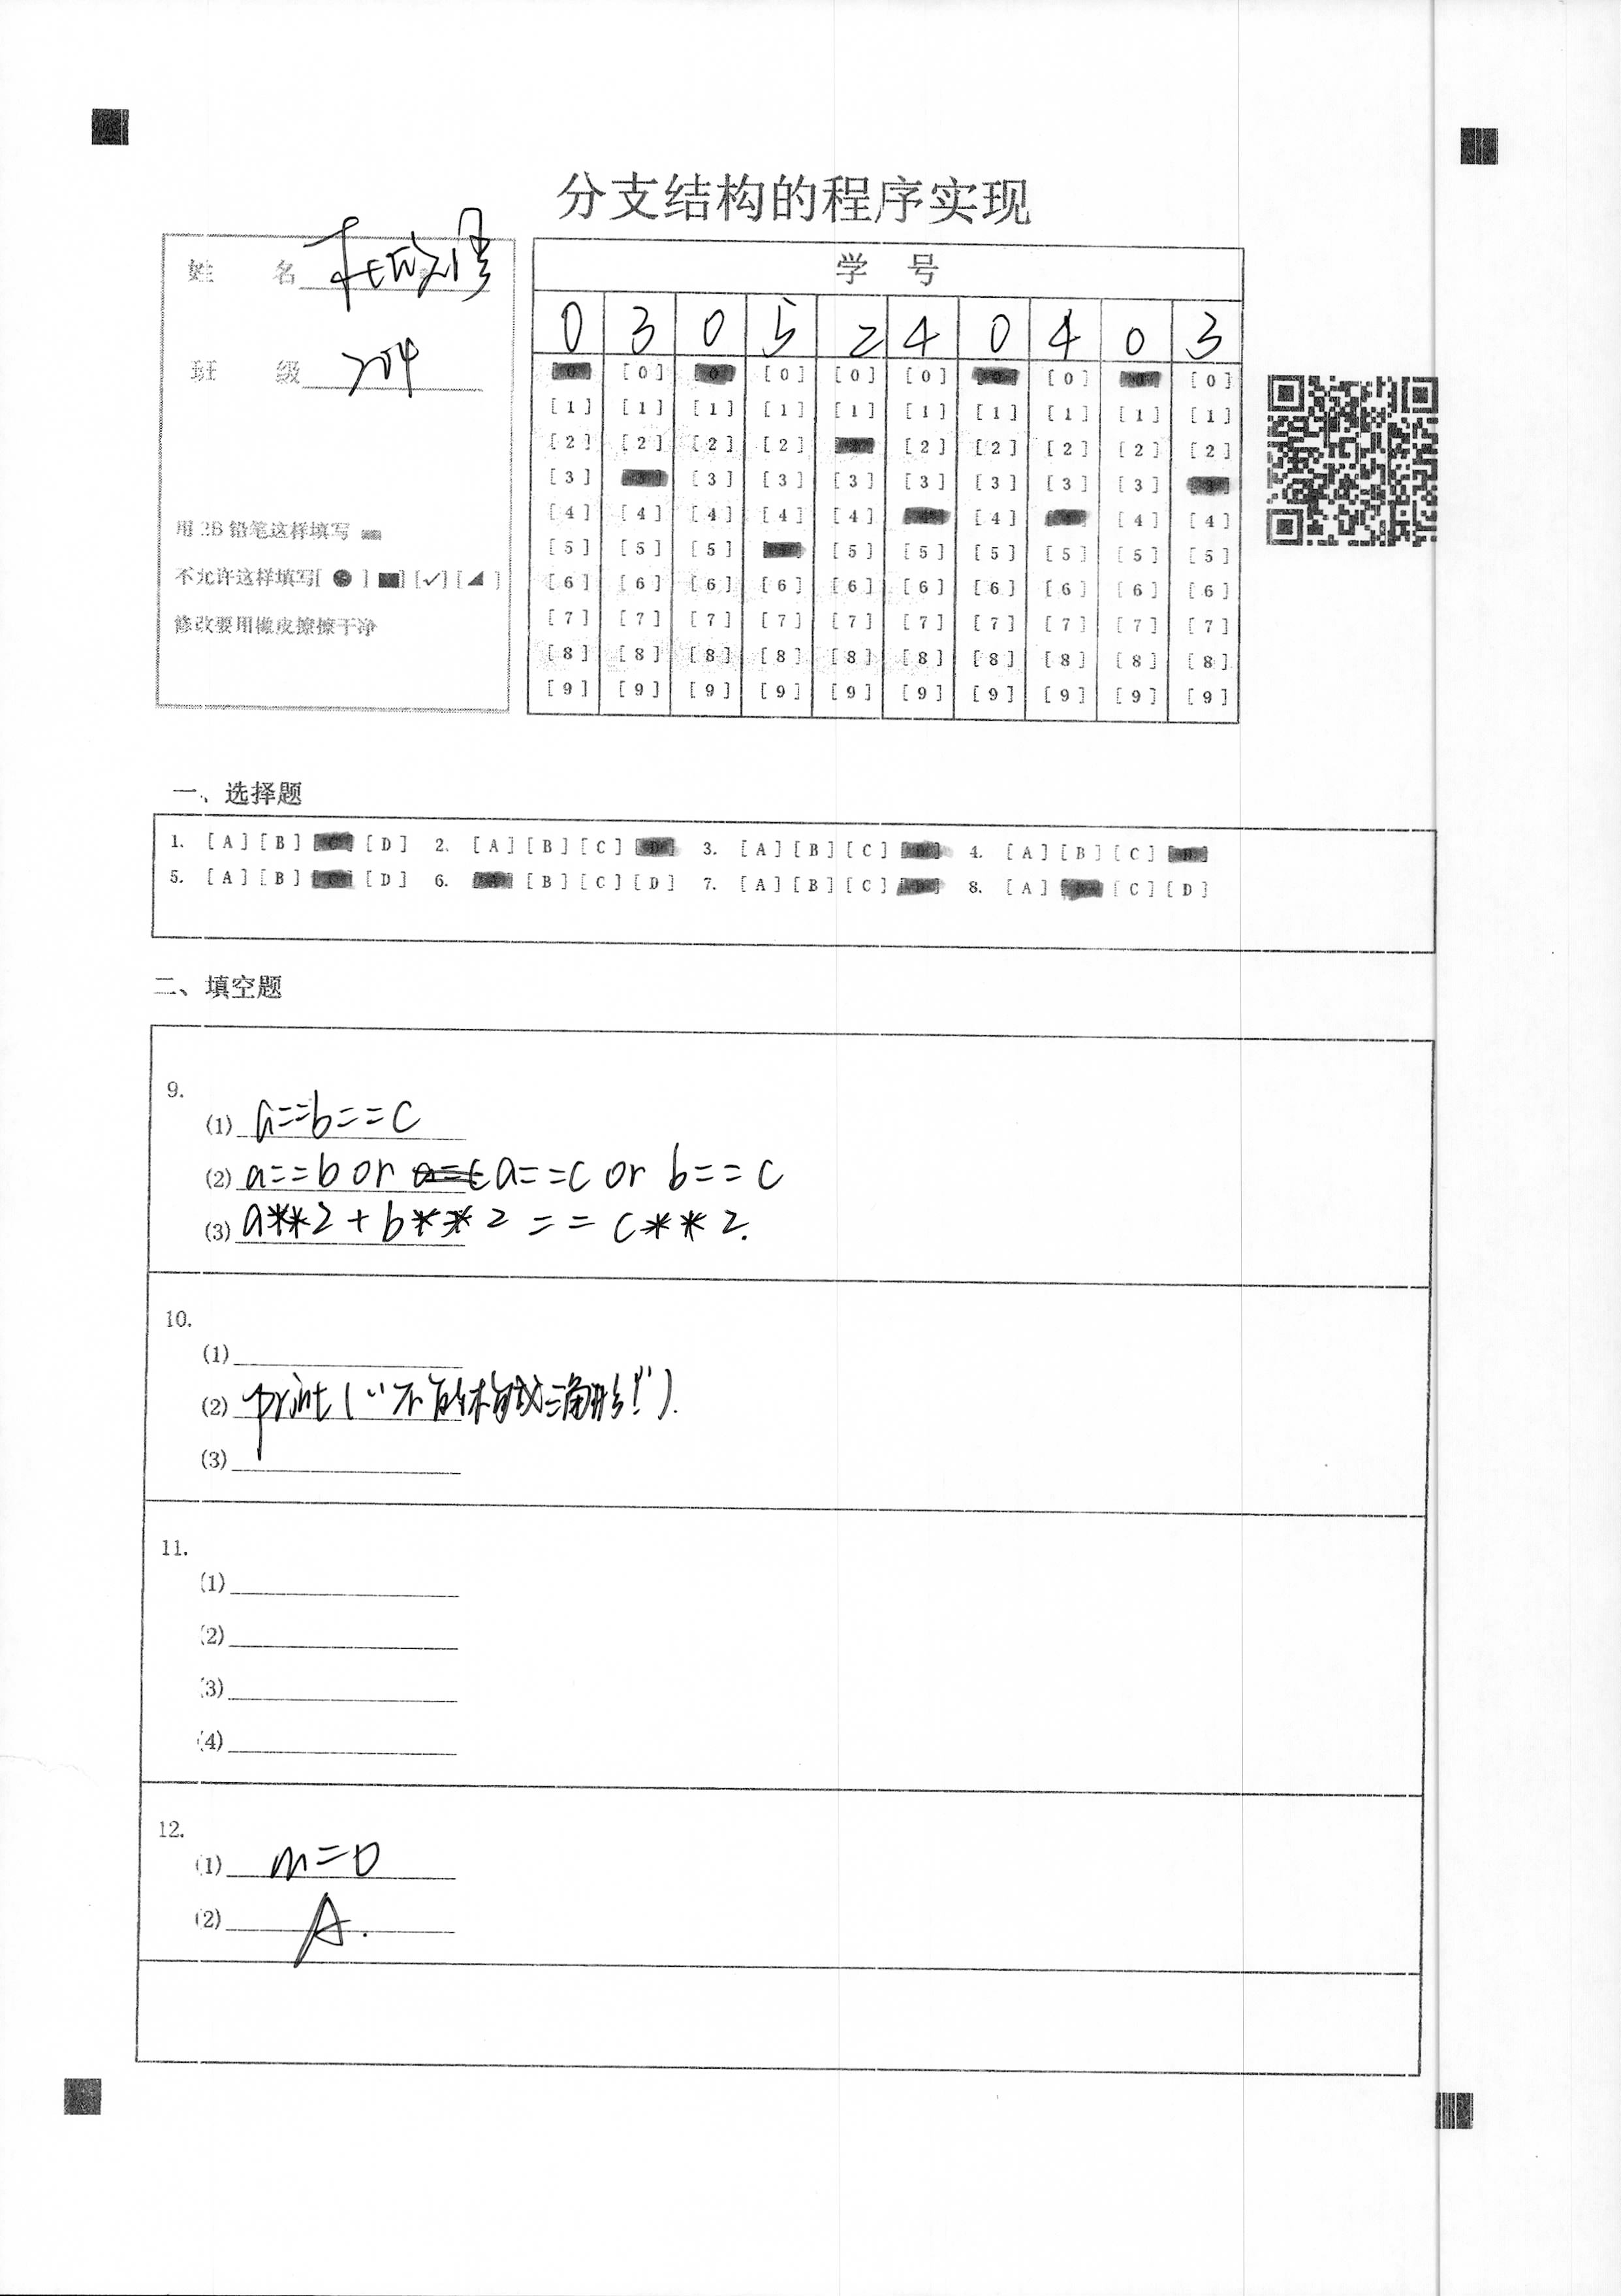 分支结构的程序实现
姓 名
班 级 204
用 2B 铅笔这样填写
不允许这样填写[ ● ] [■] [✓] [◢ ]
修改要用橡皮擦擦干净
学 号
0 3 0 5 2 4 0 4 0 3
[0] [0] [0] [0] [0] [0] [0] [0] [0] [0]
[1] [1] [1] [1] [1] [1] [1] [1] [1] [1]
[2] [2] [2] [2] [2] [2] [2] [2] [2] [2]
[3] [3] [3] [3] [3] [3] [3] [3] [3] [3]
[4] [4] [4] [4] [4] [4] [4] [4] [4] [4]
[5] [5] [5] [5] [5] [5] [5] [5] [5] [5]
[6] [6] [6] [6] [6] [6] [6] [6] [6] [6]
[7] [7] [7] [7] [7] [7] [7] [7] [7] [7]
[8] [8] [8] [8] [8] [8] [8] [8] [8] [8]
[9] [9] [9] [9] [9] [9] [9] [9] [9] [9]
一、选择题
1. [A] [B] [C] [D] 2. [A] [B] [C] [D] 3. [A] [B] [C] [D] 4. [A] [B] [C] [D]
5. [A] [B] [C] [D] 6. [A] [B] [C] [D] 7. [A] [B] [C] [D] 8. [A] [B] [C] [D]
二、填空题
9.
(1) a==b==c
(2) a==b or a==c or b==c
(3) a**2+b**2==c**2.
10.
(1)
(2) print("不能构成三角形!").
(3)
11.
(1)
(2)
(3)
(4)
12.
(1) m=0
(2) A.